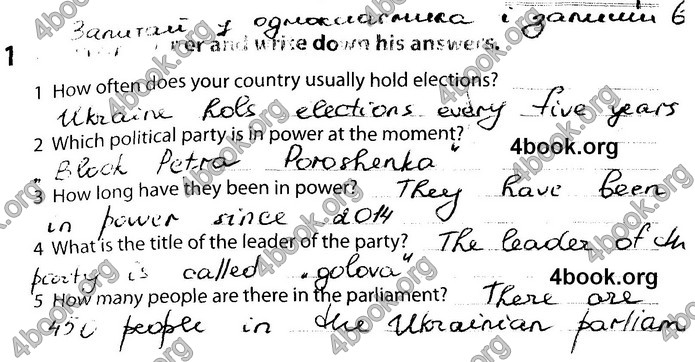 Запитай у однокласника і запиши в
1 er and write down his answers.
1 How often does your country usually hold elections?
Ukraine hols elections every five years
2 Which political party is in power at the moment?
4book.org
"Block Petra Poroshenka"
3 How long have they been in power? They have been
in power since 2014
4 What is the title of the leader of the party? The leader of
party is called "golova"
4book.org
5 How many people are there in the parliament? There are
450 people in the Ukrainian parliam